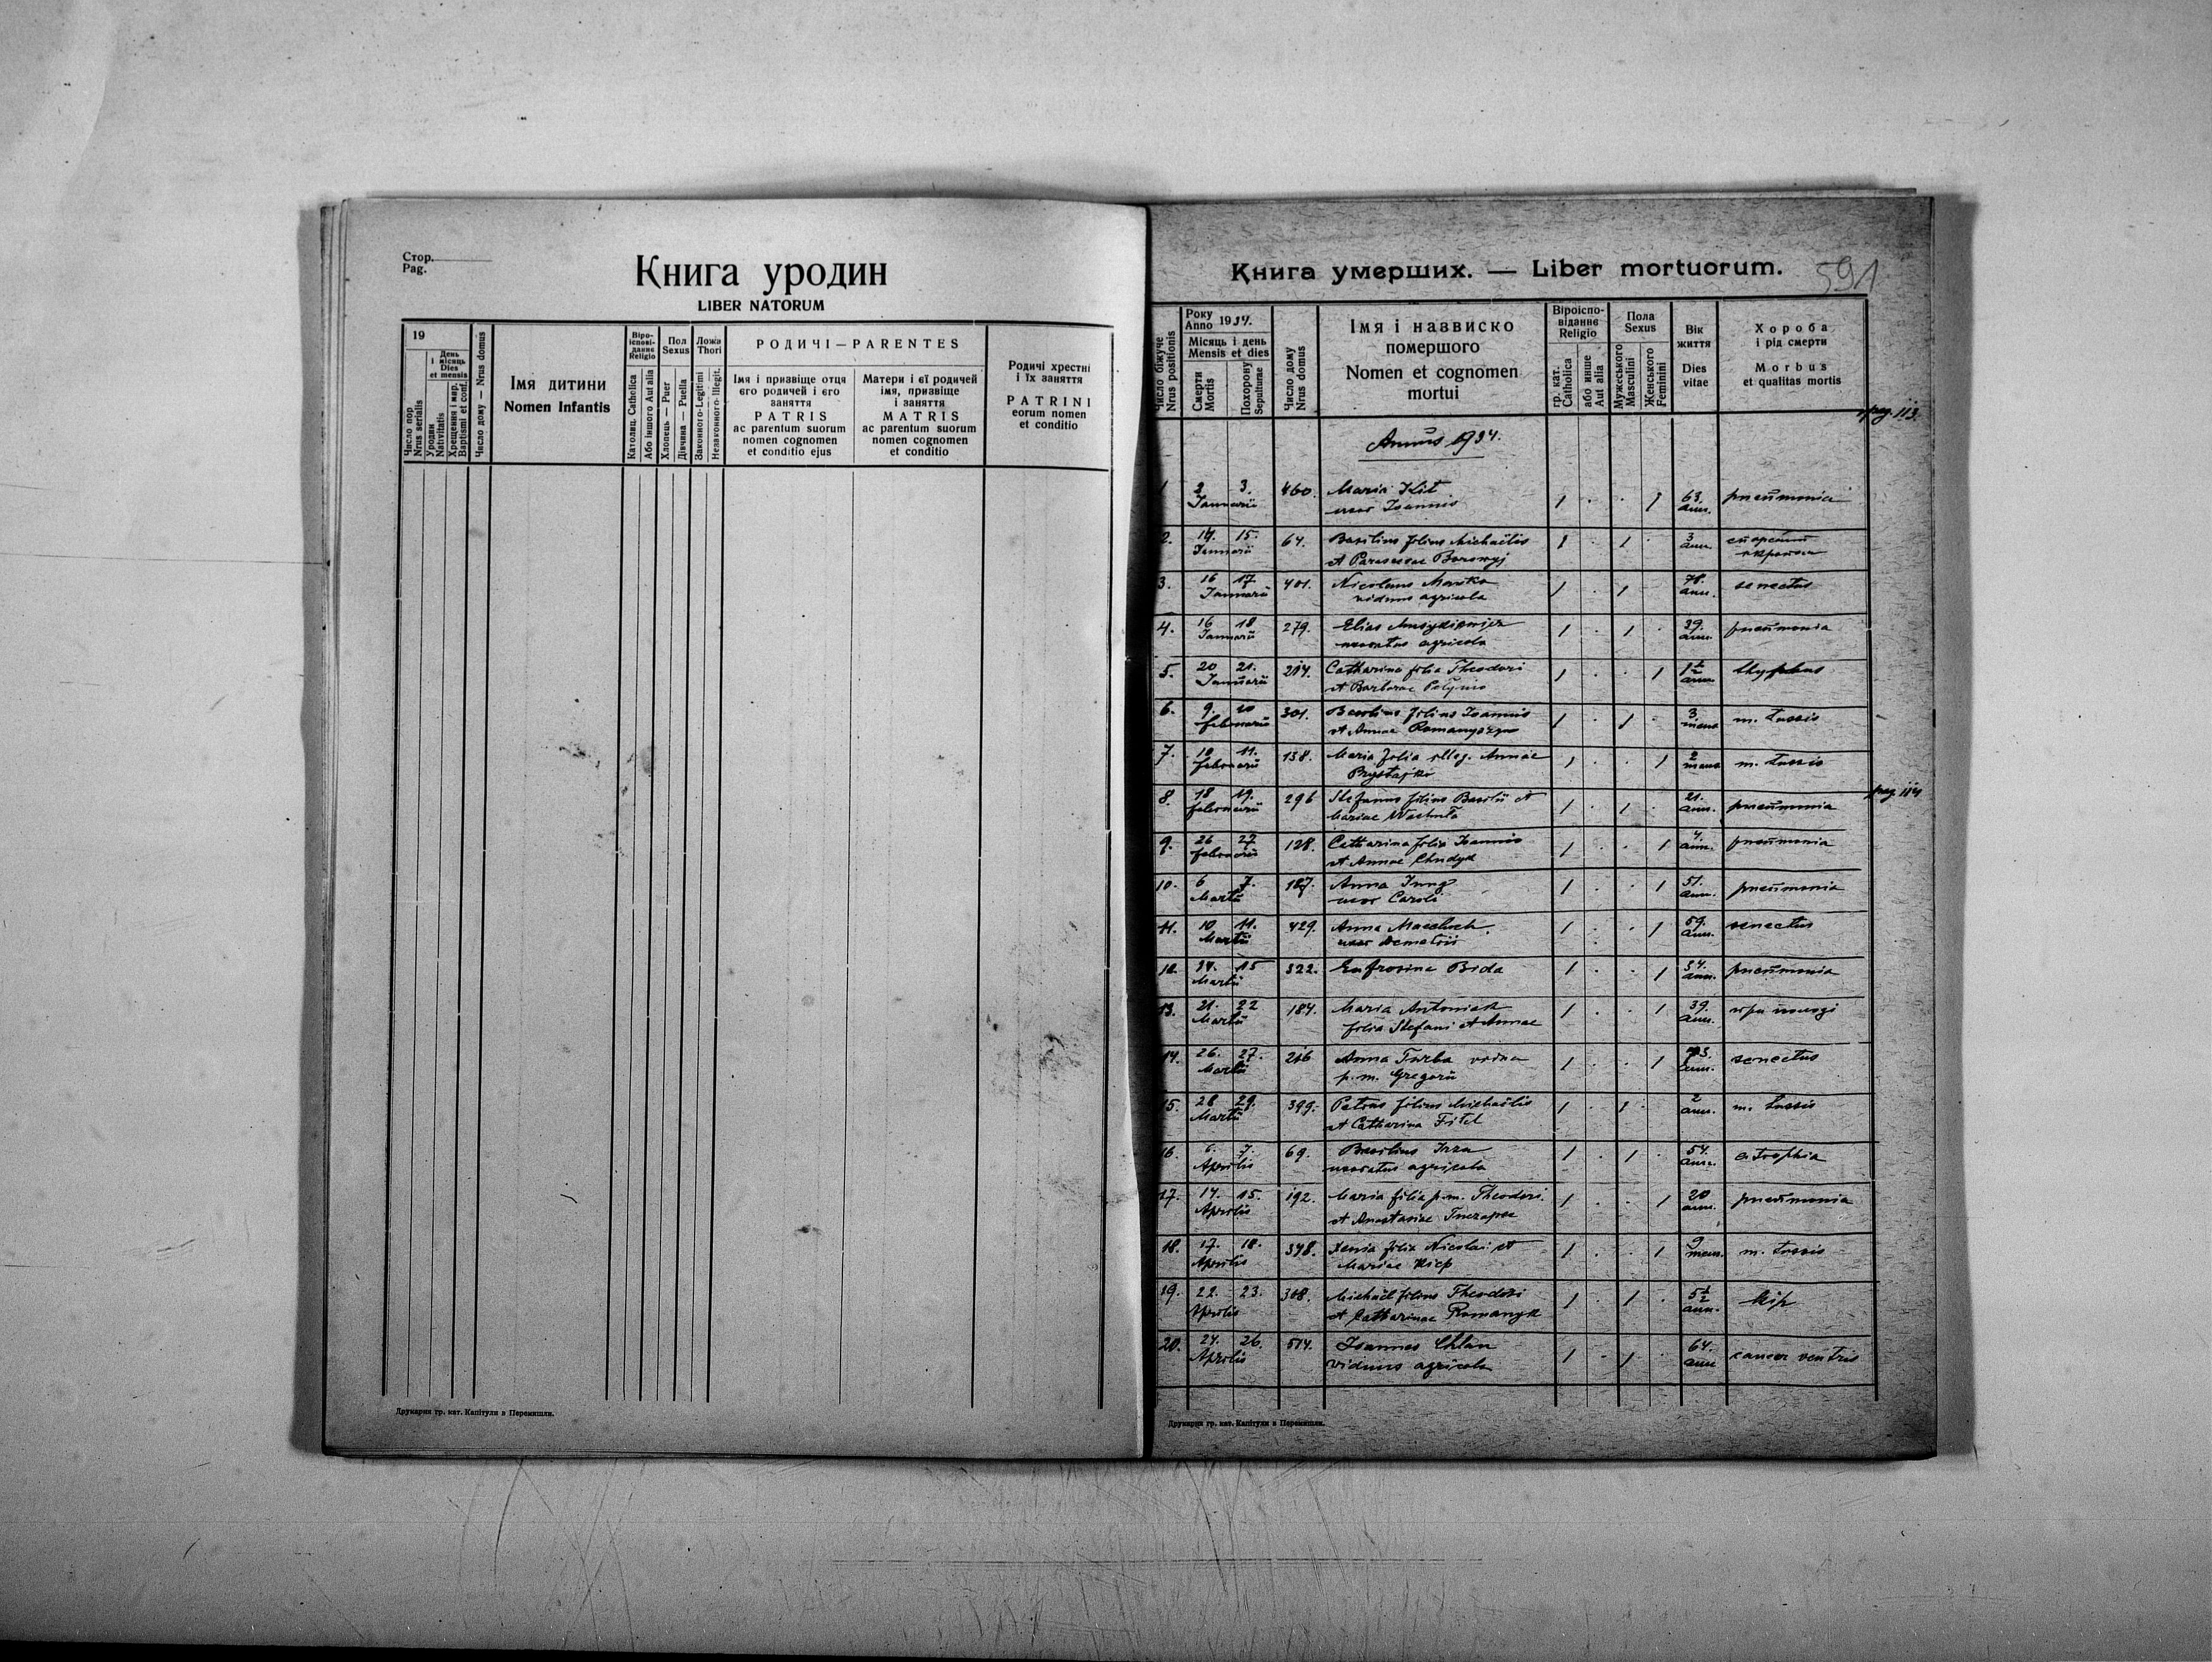 Стор.
Pag.
Книга уродин
LIBER NATORUM
19
День і місяць
Dies et mensis
Число пор
Nrus serialis
Уродин
Nativitatis
Хрещення і мир.
Baptismi et conf.
Число дому — Nrus domus
Імя дитини
Nomen Infantis
Віроісповіданнє
Religio
Католиц. Catholica
Або іншого Aut alia
Пол
Sexus
Хлопець — Puer
Дівчина — Puella
Ложа
Thori
Законного-Legitimi
Незаконного-Illegit.
РОДИЧІ — PARENTES
Імя і призвіще отця
єго родичей і єго
заняття
PATRIS
ac parentum suorum
nomen cognomen
et conditio ejus
Матери і єї родичей
імя, призвіще
і заняття
MATRIS
ac parentum suorum
nomen cognomen
et conditio
Родичі хрестні
і їх заняття
PATRINI
eorum nomen
et conditio
Друкарня гр. кат. Капітули в Перемишли.
Книга умерших. — Liber mortuorum.
591
Число біжуче
Nrus positionis
Року
Anno 1934.
Місяць і день
Mensis et dies
Смерти
Mortis
Похорону
Sepulturae
Число дому
Nrus domus
Імя і назвиско
помершого
Nomen et cognomen
mortui
Віроіспо-
віданнє
Religio
гр. кат.
Catholica
або инше
Aut alia
Пола
Sexus
Мужеського
Masculini
Женського
Feminini
Вік
життя
Dies
vitae
Хороба
і рід смерти
Morbus
et qualitas mortis
pag. 113.
Annus 1934.
1 2 3. 460. Maria Kit 1 . . 1 63. pneumonia
Januarii uxor Joannis ann.
2. 14. 15. 64. Basilius filius Michaëlis 1 . 1 . 3
Januarii et Parasceae ann.
3. 16 17 401. Nicolaus 1 . 1 78. senectus
Januarii viduus agricola ann.
4. 16 18 279. Elias 1 . 1 . 39. pneumonia
Januarii uxoratus agricola ann.
5. 20 21. 214. Catharina filia Theodori 1 . . 1 1½ thyphus
Januarii et Barbarae ann.
6. 9. 10 301. Basilius filius Joannis 1 . 1 . 3 m. tussis
februarii et Annae mens
7. 10 11. 138. Maria filia illeg. Annae 1 . . 1 2 m. tussis
februarii Prystajko mens
8. 18 19. 296 Stefanus filius Basilii et 1 . 1 . 21. pneumonia
februarii Mariae ann.
pag. 114
9. 26 27 128. Catharina filia Joannis 1 . . 1 4. pneumonia
februarii et Annae Chudyk ann.
10. 6 7. 187. Anna Jung 1 . . 1 51. pneumonia
Martii uxor Caroli ann.
11. 10 11. 429. Anna 1 . . 1 59. senectus
Martii uxor Demetrii ann.
12. 14. 15 322. Eufrosina Bida 1 . . 1 34. pneumonia
Martii ann.
13. 21. 22 184. Maria Antoniak 1 . . 1 39. при пологі
Martii filia Stefani et Annae ann.
14. 26. 27. 216 Anna Turba vidua 1 . . 1 senectus
Martii p. m. Gregorii ann.
15. 28 29. 399. Petrus filius Michaëlis 1 . 1 . 2 m. tussis
Martii et Catharina Fitel ann.
16. 6. 7. 69. Basilius 1 . 1 . 54. atrophia
Aprilis uxoratus agricola ann.
17. 14. 15. 192. Maria filia p. m. Theodori 1 . . 1 20 pneumonia
Aprilis et Anastasiae ann.
18. 17. 18. 348. Xenia filia Nicolai et 1 . . 1 9 m. tussis
Aprilis Mariae Kiep mens.
19. 22. 23. 308. Michaël filius Theodori 1 . 1 . 5½ kip
Aprilis et Catharinae Romanyk ann.
20. 24. 26. 514. Joannes Chlan 1 . 1 64. cancer ventris
Aprilis viduus agricola ann
Друкарня гр. кат. Капітули в Перемишли.